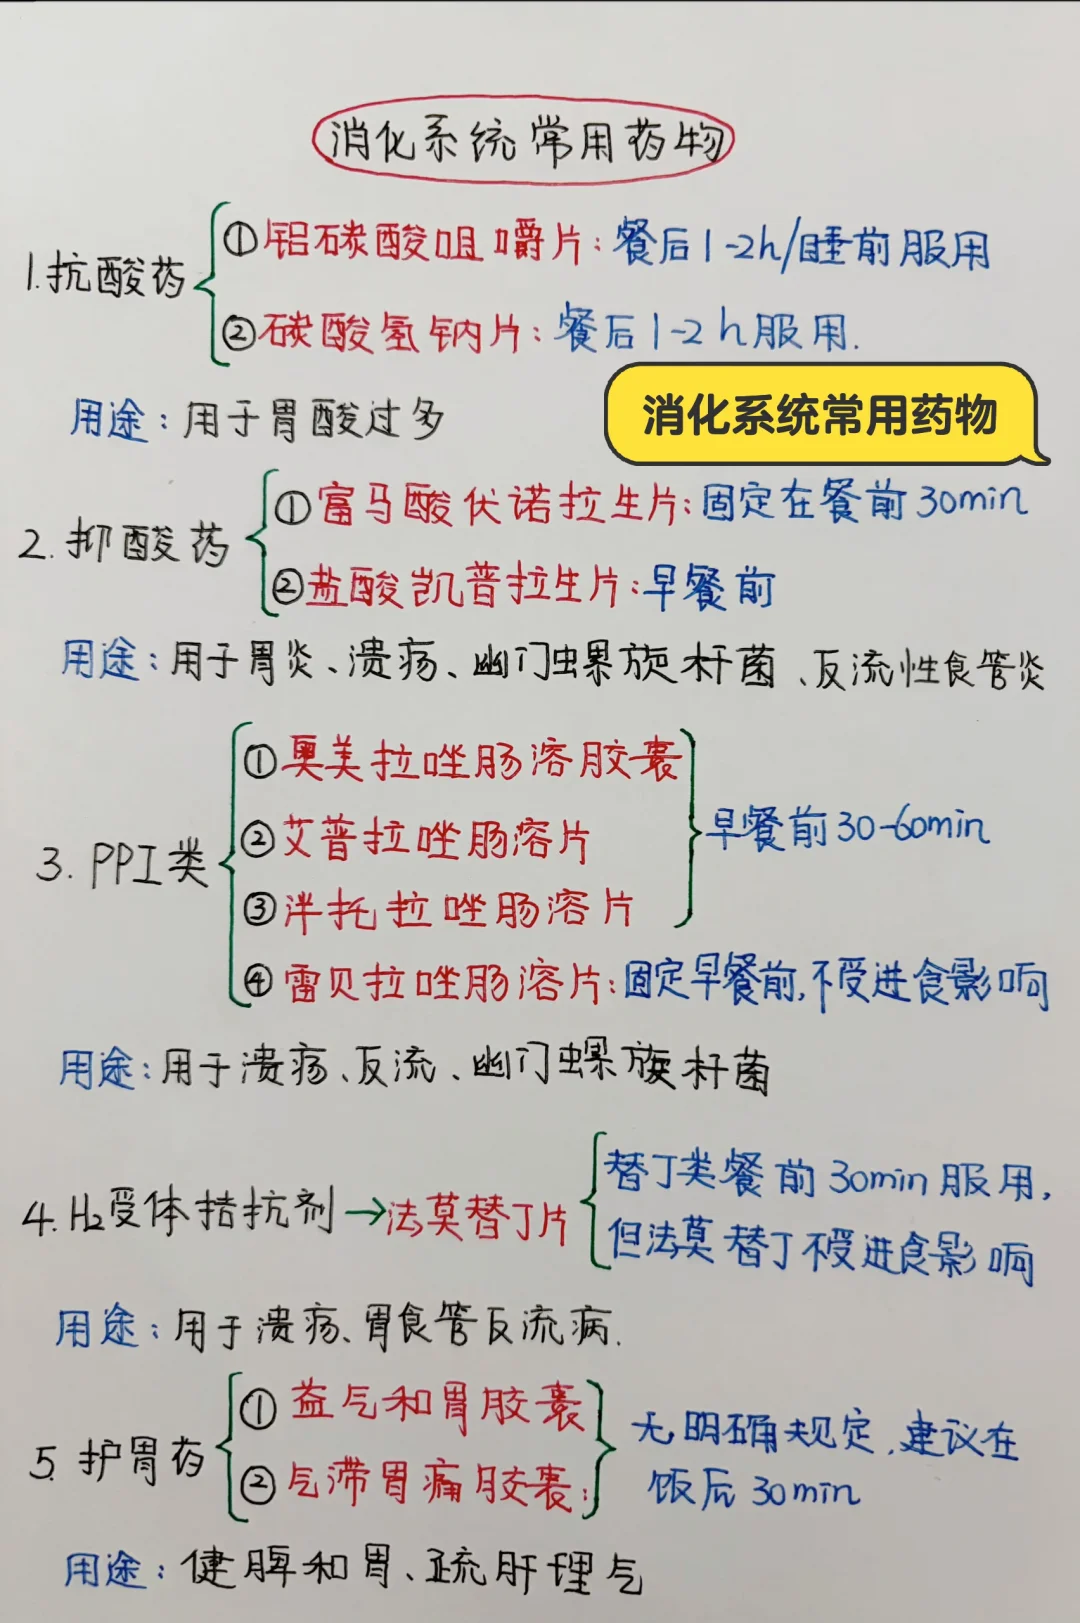 消化系统常用药物
1.抗酸药
①铝碳酸咀嚼片:餐后1-2h/睡前服用
②碳酸氢钠片:餐后1-2h服用.
消化系统常用药物
用途:用于胃酸过多
2.抑酸药
①富马酸伏诺拉生片:固定在餐前30min
②盐酸凯普拉生片:早餐前
用途:用于胃炎、溃疡、幽门螺旋杆菌、反流性食管炎
3.PPI类
①奥美拉唑肠溶胶囊
②艾普拉唑肠溶片
③泮托拉唑肠溶片
早餐前30-60min
④雷贝拉唑肠溶片:固定早餐前,不受进食影响
用途:用于溃疡、反流、幽门螺旋杆菌
4.H₂受体拮抗剂→法莫替丁片
替丁类餐前30min服用,
但法莫替丁不受进食影响
用途:用于溃疡、胃食管反流病.
5.护胃药
①益气和胃胶囊
②气滞胃痛胶囊:
无明确规定,建议在
饭后30min
用途:健脾和胃、疏肝理气